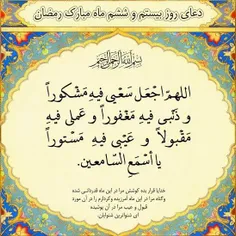 دعای روز بیستم و ششم ماه مبارک رمضان
بسم الله الرحمن الرحیم
اللهمّ اجْعَل سَعْیی فیهِ مَشْکوراً
و ذَنْبی فیهِ مَغْفوراً و عَملی فیهِ
مَقْبولاً و عَیْبی فیهِ مَسْتوراً
یا أسْمَعِ السّامعین.
خدایا قرار بده کوشش مرا در این ماه قدردانی شده
وگناه مرا در این ماه آمرزیده وکردارم را در آن مورد
قبول و عیب مرا در آن پوشیده
ای شنواترین شنوایان